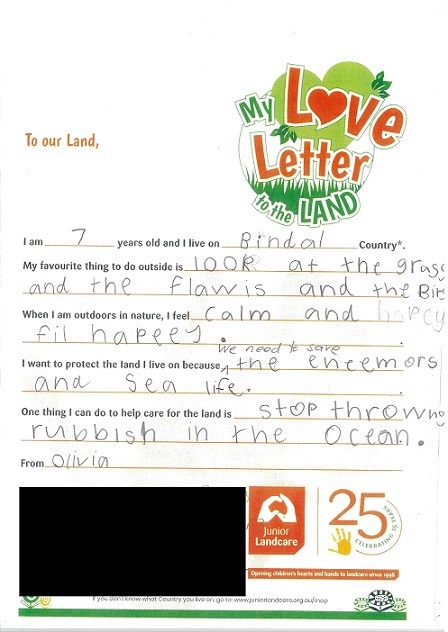 My Love Letter to the LAND
To our Land,
I am 7 years old and I live on Bindal Country*.
My favourite thing to do outside is look at the grass
and the flawis and the Bit
When I am outdoors in nature, I feel calm and hapey
fil hapeey.
we need to save
I want to protect the land I live on because the eneemors
and sea life.
One thing I can do to help care for the land is stop throwno
rubbish in the Ocean.
From Olivia
Junior Landcare
25 YEARS CELEBRATING
Opening children's hearts and hands to landcare since 1998
If you don't know what Country you live on, go to: www.juniorlandcare.org.au/map